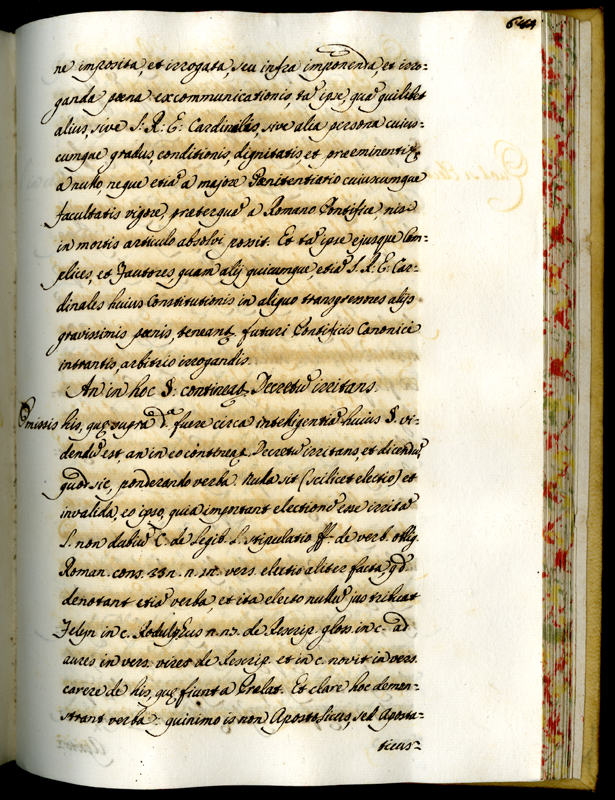 644
ne imposita, et irrogata, seu infra imponenda, et irro=
ganda pœna excommunicationis, ta' ipse, qua' quilibet
alius, sive S: R: E: Cardinales, sive alia persona cuius=
cumque gradus, conditionis dignitatis et preeminentię
a nullo neque etia' a majore Pœnitentiario cuiuscumque
facultatis vigore, preterqua' a Romano Pontifice, nisi
in mortis articulo absolvi possit. Et ta' ipse ejusque Com=
plices, et Fautores quam alij quicumque etia' S. R. E: Car=
dinales huius Constitutionis in aliquo transgressores alijs
gravissimis pœnis, teneant futuri Pontificis Canonice
intrantis, arbitrio irrogandis.
An in hoc §. contineat Decretu' irritans.
Omissis his, quę supra d.a fuere circa intelligentia' huius §. vi=
dendu' est, an in eo contineat Decretu' irritans, et dicendu'
quod sic, ponderando verba. Nulla sit (scilicet electio) et
invalida, eo ipso, quia important electione' esse irrita'
L. non dubiu' C. de Legib. L. stipulatio ff. de verb. oblig.
Roman. cons. n. vers. electio aliter facta qd
denotant etia' verba, et ita electo nullu' jus tribuat
Felyn in c. Rodulphus n. de Rescrip. glos. in c. ad
aures in vers. vires de Rescrip. et in c. novit in vers.
carere de his, quę fiunt a Prelat. Et clare hoc demon=
strant verba: quinimo is non Apostolicus, sed Aposta=
ticus=